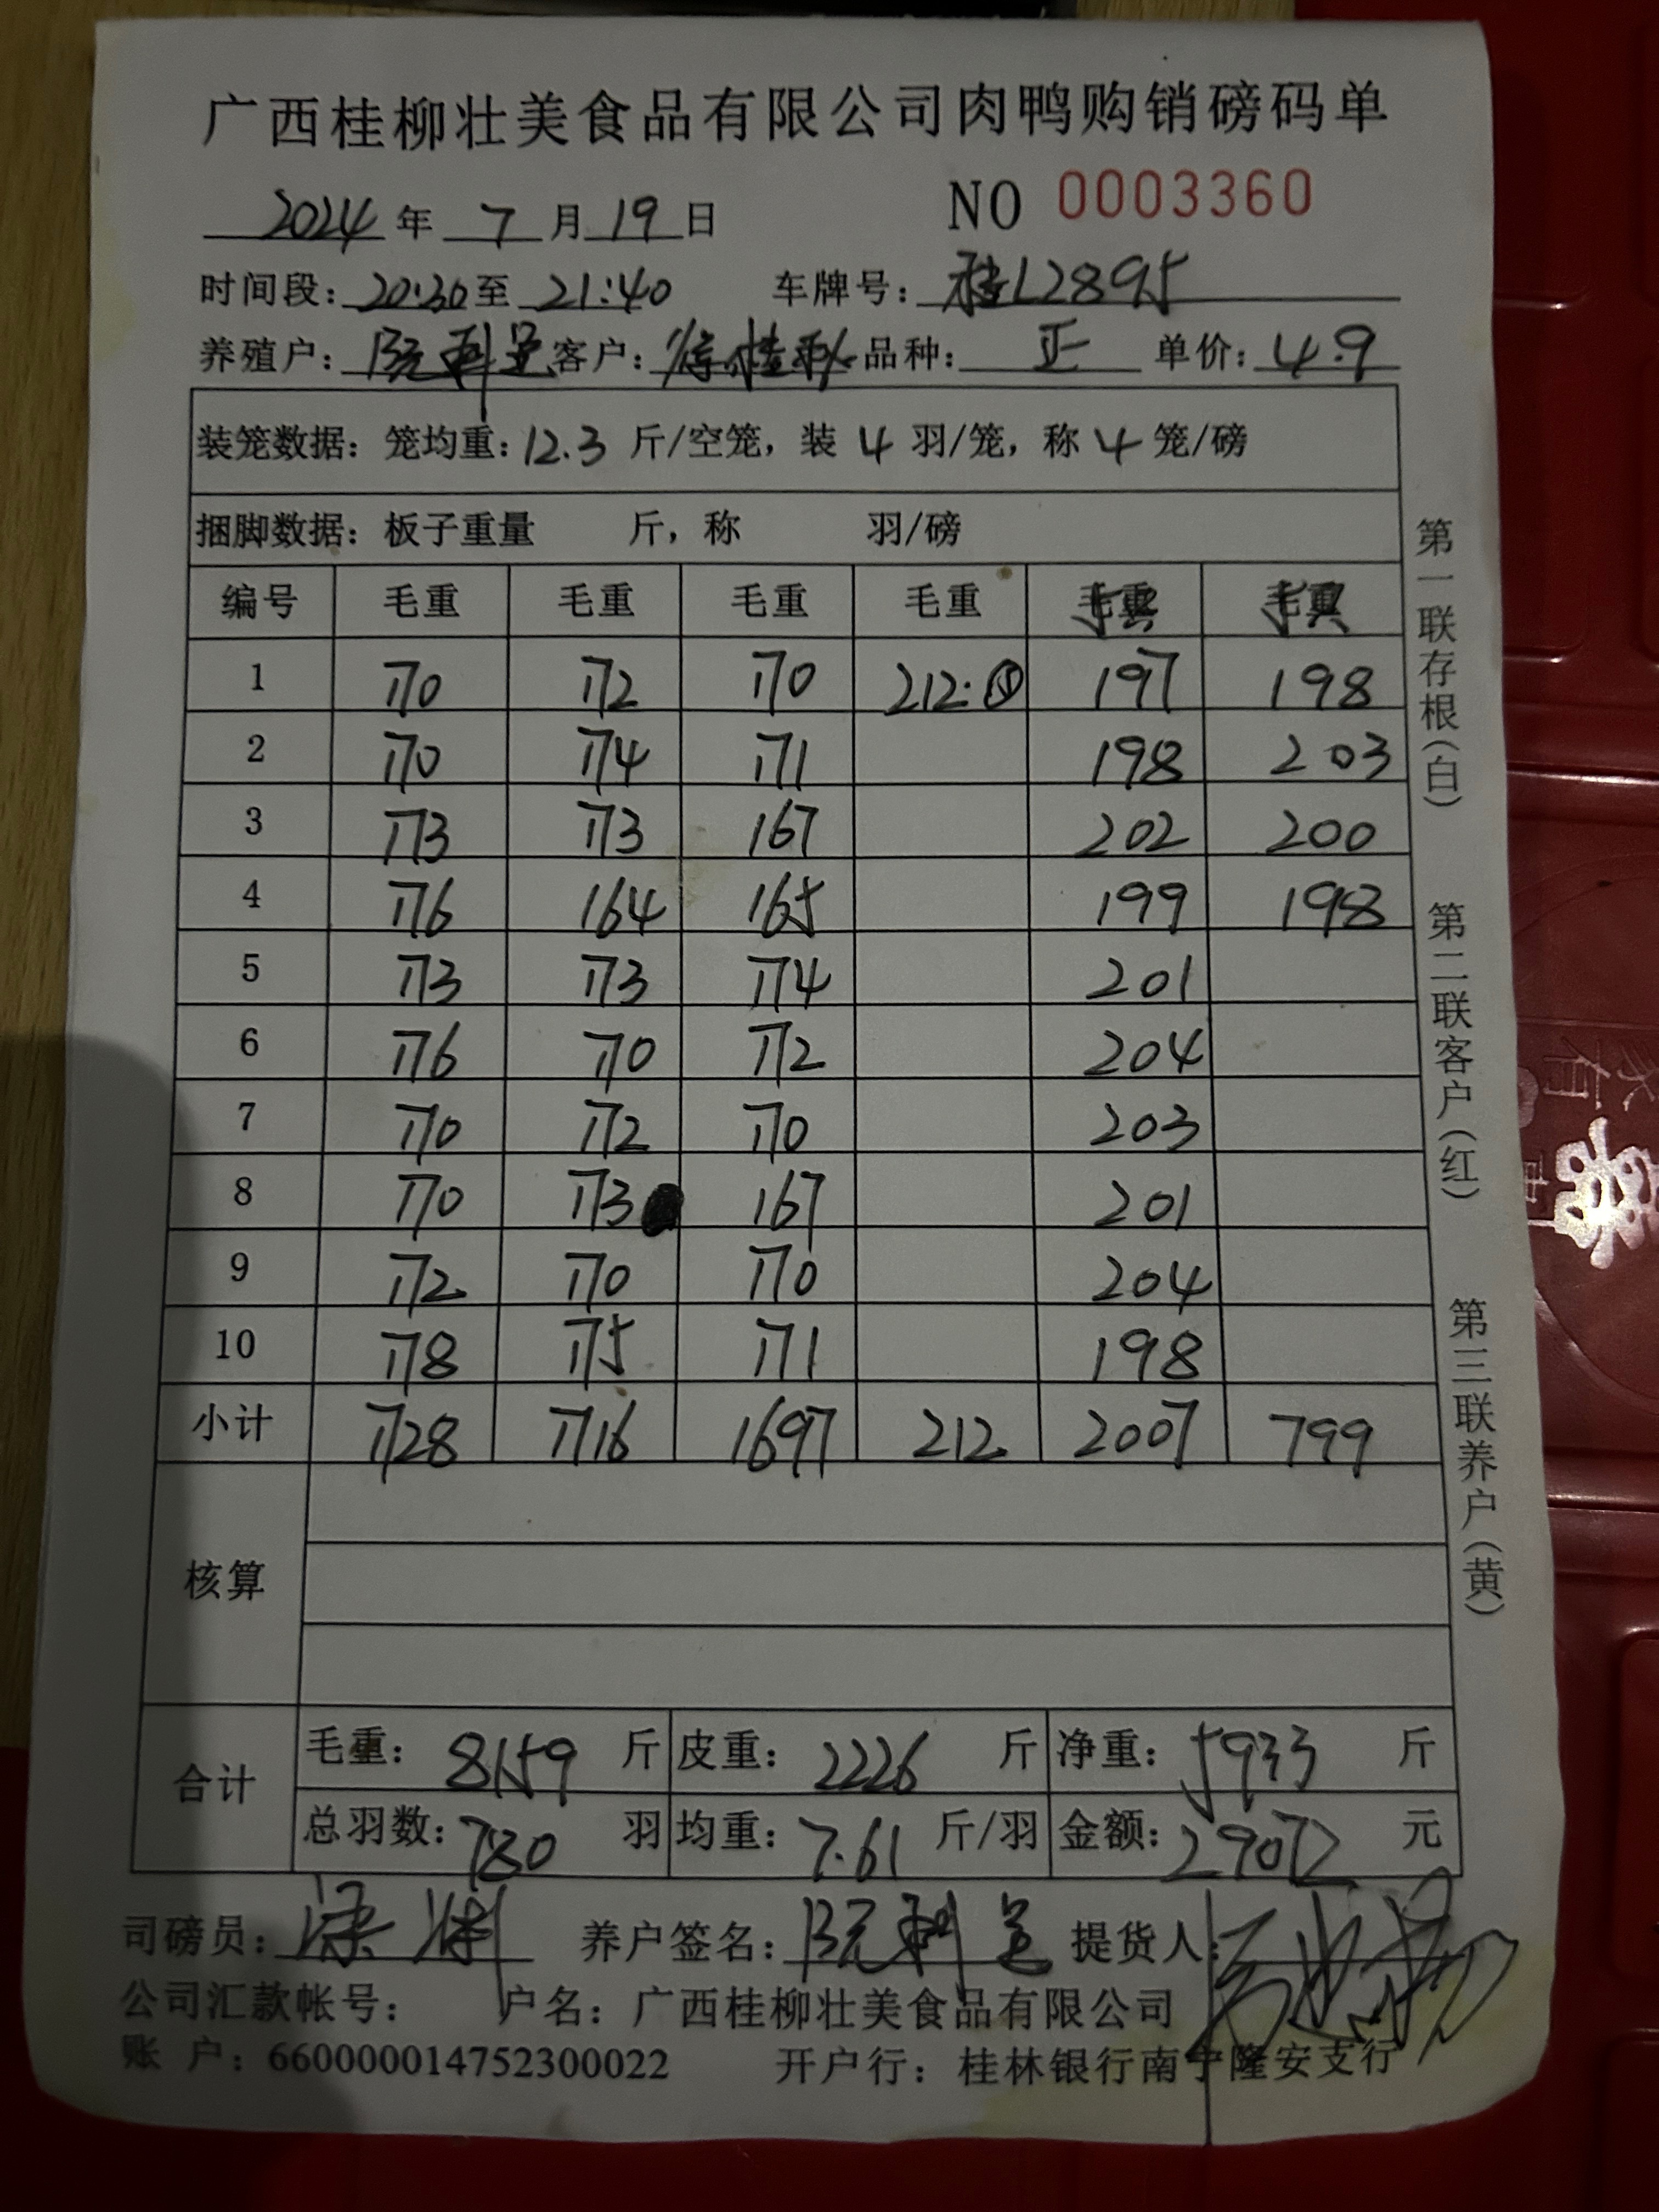 广西桂柳壮美食品有限公司肉鸭购销磅码单
2024 年 7 月 19 日 NO 0003360
时间段: 20:30 至 21:40 车牌号: 桂L2895
养殖户: 客户: 品种: 正 单价: 4.9
装笼数据: 笼均重: 12.3 斤/空笼, 装 4 羽/笼, 称 4 笼/磅
捆脚数据: 板子重量 斤, 称 羽/磅
编号 毛重 毛重 毛重 毛重
1 170 172 170 212: 197 198
2 170 174 171 198 203
3 173 173 167 202 200
4 176 164 165 199 198
5 173 173 174 201
6 176 170 172 204
7 170 172 170 203
8 170 173 167 201
9 172 170 170 204
10 178 175 171 198
小计 1728 1716 1697 212 2007 799
核算
合计 毛重: 8159 斤 皮重: 2226 斤 净重: 5933 斤
总羽数: 780 羽 均重: 7.61 斤/羽 金额: 29072 元
司磅员: 养户签名: 提货人:
公司汇款帐号: 户名: 广西桂柳壮美食品有限公司
账 户: 660000014752300022 开户行: 桂林银行南宁隆安支行
第一联存根(白)
第二联客户(红)
第三联养户(黄)